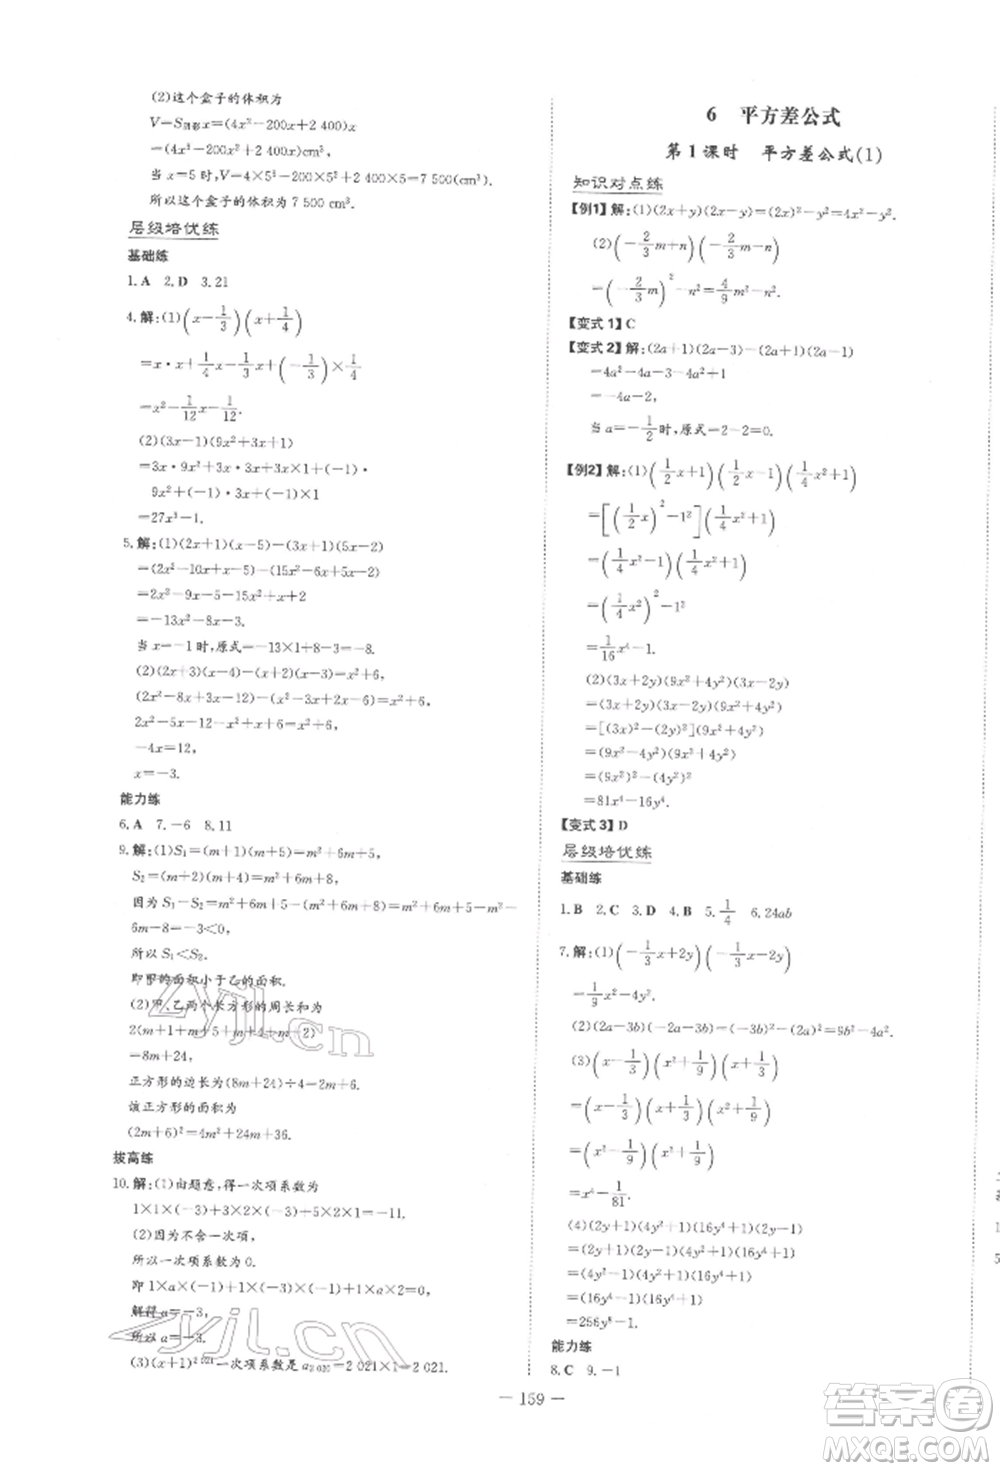 (2)这个盒子的体积为
V=S阴影x=(4x²-200x+2 400)x
=(4x³-200x²+2 400x)cm³.
当x=5时,V=4×5³-200×5²+2 400×5=7 500(cm³).
所以这个盒子的体积为7 500 cm³.
层级培优练
基础练
1.A 2.D 3.21
4.解:(1)(x-1/3)(x+1/4)
=x·x+1/4x-1/3x+(-1/3)×1/4
=x²-1/12x-1/12.
(2)(3x-1)(9x²+3x+1)
=3x·9x²+3x·3x+3x×1+(-1)×
9x²+(-1)·3x+(-1)×1
=27x³-1.
5.解:(1)(2x+1)(x-5)-(3x+1)(5x-2)
=(2x²-10x+x-5)-(15x²-6x+5x-2)
=2x²-9x-5-15x²+x+2
=-13x²-8x-3.
当x=-1时,原式=-13×1+8-3=-8.
(2)(2x+3)(x-4)-(x+2)(x-3)=x²+6,
(2x²-8x+3x-12)-(x²-3x+2x-6)=x²+6,
2x²-5x-12-x²+x+6=x²+6,
-4x=12,
x=-3.
能力练
6.A 7.-6 8.11
9.解:(1)S₁=(m+1)(m+5)=m²+6m+5,
S₂=(m+2)(m+4)=m²+6m+8,
因为S₁-S₂=m²+6m+5-(m²+6m+8)=m²+6m+5-m²-
6m-8=-3<0,
所以S₁<S₂.
即甲的面积小于乙的面积.
(2)甲、乙两个长方形的周长和为
2(m+1+m+5+m+4+m+2)
=8m+24,
正方形的边长为(8m+24)÷4=2m+6.
该正方形的面积为
(2m+6)²=4m²+24m+36.
拔高练
10.解:(1)由题意,得一次项系数为
1×1×(-3)+3×2×(-3)+5×2×1=-11.
(2)因为不含一次项,
所以一次项系数为0.
即1×a×(-1)+1×(-3)×(-1)+
解得a=-3,
所以a=-3.
(3)(x+1)²⁰²¹一次项系数是a₂₀₂₀=2 021×1=2 021.
6 平方差公式
第1课时 平方差公式(1)
知识对点练
【例1】解:(1)(2x+y)(2x-y)=(2x)²-y²=4x²-y².
(2)(-2/3m+n)(-2/3m-n)
=(-2/3m)²-n²=4/9m²-n².
【变式1】C
【变式2】解:(2a+1)(2a-3)-(2a+1)(2a-1)
=4a²-4a-3-4a²+1
=-4a-2,
当a=-1/2时,原式=2-2=0.
【例2】解:(1)(1/2x+1)(1/2x-1)(1/4x²+1)
=[(1/2x)²-1²](1/4x²+1)
=(1/4x²-1)(1/4x²+1)
=(1/4x²)²-1²
=1/16x⁴-1.
(2)(3x-2y)(9x²+4y²)(3x+2y)
=(3x+2y)(3x-2y)(9x²+4y²)
=[(3x)²-(2y)²](9x²+4y²)
=(9x²-4y²)(9x²+4y²)
=(9x²)²-(4y²)²
=81x⁴-16y⁴.
【变式3】D
层级培优练
基础练
1.B 2.C 3.D 4.B 5.1/4 6.24ab
7.解:(1)(-1/3x+2y)(-1/3x-2y)
=1/9x²-4y².
(2)(2a-3b)(-2a-3b)=(-3b)²-(2a)²=9b²-4a².
(3)(x-1/3)(x²+1/9)(x+1/3)
=(x-1/3)(x+1/3)(x²+1/9)
=(x²-1/9)(x²+1/9)
=x⁴-1/81.
(4)(2y+1)(4y²+1)(16y⁴+1)(2y-1)
=(2y+1)(2y-1)(4y²+1)(16y⁴+1)
=(4y²-1)(4y²+1)(16y⁴+1)
=(16y⁴-1)(16y⁴+1)
=256y⁸-1.
能力练
8.C 9.-1
— 159 —
zyjl.cn
zyjl.cn
答案圈
MXQE.COM